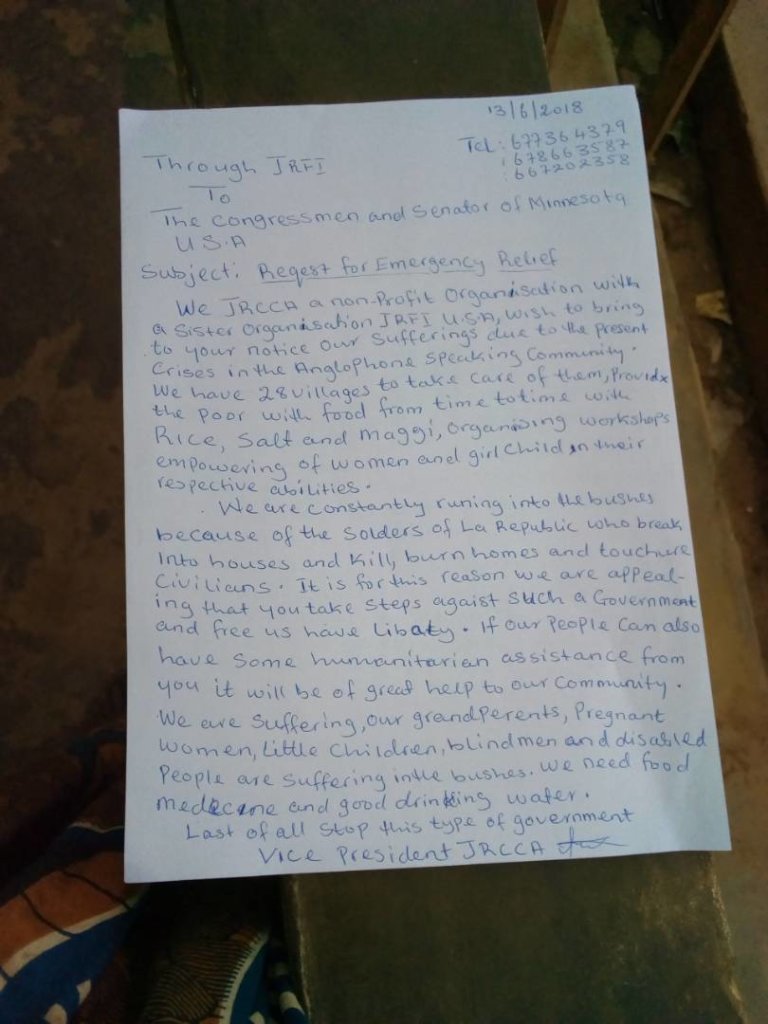 13/6/2018
Tel: 677364379
: 678663587
: 667202358
Through JRFI
To
The congressmen and Senator of Minnesota
U.S.A
Subject: Reqest for Emergency Relief
We JRCCA a non-Profit Organisation with
a Sister Organisation JRFI U.S.A, wish to bring
to your notice our Sufferings due to the present
Crises in the Anglophone Speaking Community.
We have 28 villages to take care of them, Provide
the poor with food from time to time with
Rice, Salt and Maggi, organising workshops
empowering of women and girl Child in their
respective abilities.
We are constantly runing into the bushes
because of the Solders of La Republic who break
into houses and kill, burn homes and touchure
Civilians. It is for this reason we are appeal-
ing that you take Steps agaist Such a Government
and free us have Libaty. If our People can also
have some humanitarian assistance from
you it will be of great help to our Community.
We are Suffering, our grandperents, Pregnant
women, Little Children, blind men and disabled
People are Suffering in the bushes. We need food
medecine and good drinking water.
Last of all Stop this type of government
Vice President JRCCA